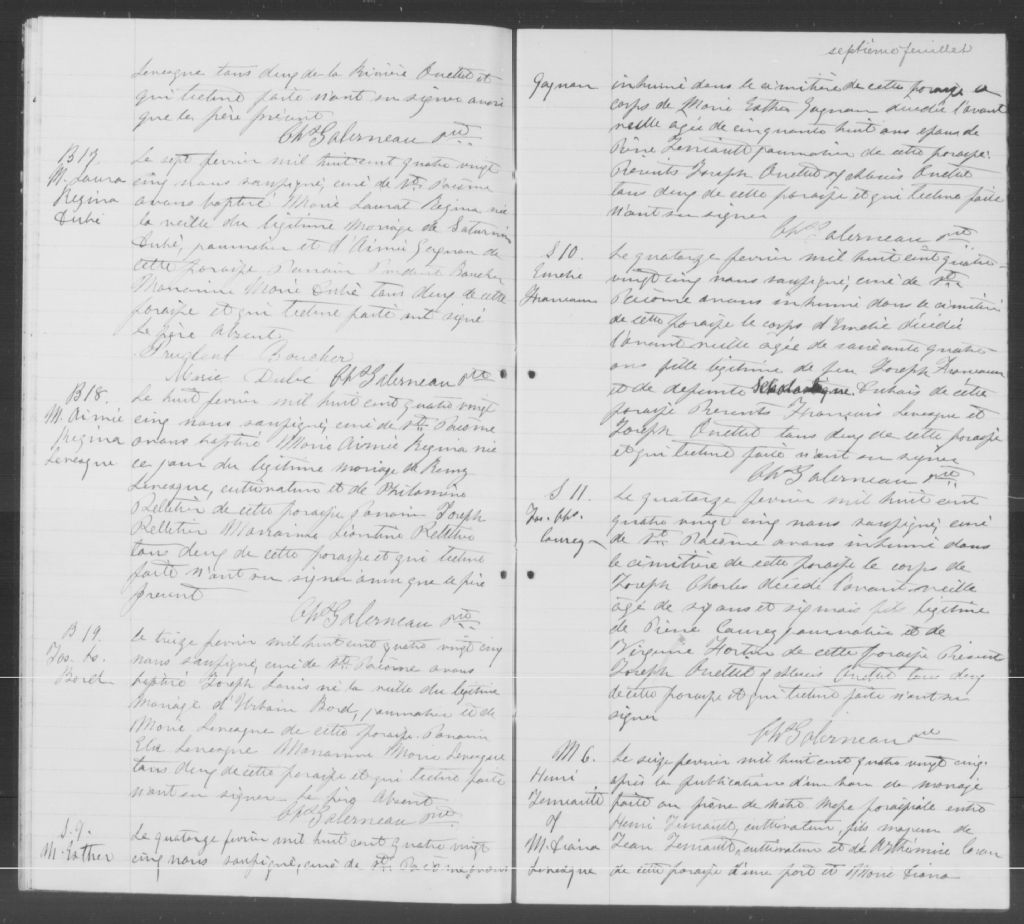 Levesque tous deux de la Rivière Ouelle et
qui lecture faite n'ont su signer ainsi
que le père présent
Chs Galerneau Ptre
B 17.
M. Laura
Regina
Dubé
Le sept fevrier mil huit cent quatre vingt
cinq nous soussigné, curé de St. Pacôme
avons baptisé Marie Laura Regina née
la veille du légitime mariage de Saturnin
Dubé, journalier et d'Aimée Gagnon de
cette paroisse Parrain Prudent Boucher
Marraine Marie Dubé tous deux de cette
paroisse et qui lecture faite ont signé
Le père absent.
Prudent Boucher
Marie Dubé Chs Galerneau Ptre
B 18.
M. Aimée
Regina
Levesque
Le huit fevrier mil huit cent quatre vingt
cinq nous soussigné, curé de St. Pacôme
avons baptisé Marie Aimée Regina née
ce jour du légitime mariage de Remy
Levesque, cultivateur et de Philomène
Pelletier de cette paroisse parrain Joseph
Pelletier Marraine Léontine Pelletier
tous deux de cette paroisse et qui lecture
faite n'ont su signer ainsi que le père
présent
Chs Galerneau Ptre
B 19.
Jos. Ls.
Bord
Le treize fevrier mil huit cent quatre vingt cinq
nous soussigné, curé de St. Pacôme avons
baptisé Joseph Louis né la veille du légitime
mariage d'Urbain Bord, journalier et de
Marie Levesque de cette paroisse. Parrain
Levesque Marraine Marie Levesque
tous deux de cette paroisse et qui lecture faite
n'ont su signer. Le père absent
Chs Galerneau Ptre
S. 9.
M. Esther
Le quatorze fevrier mil huit cent quatre vingt
cinq nous soussigné, curé de St. Pacôme, avons
septième feuillet
Gagnon
inhumé dans le cimetière de cette paroisse le
corps de Marie Esther Gagnon décédée l'avant
veille agée de cinquante huit ans epouse de
Terriault journalier de cette paroisse.
Présents Joseph Ouellet & Alexis Ouellet
tous deux de cette paroisse et qui lecture faite
n'ont su signer
Chs Galerneau Ptre
S 10.
Emelie
Francoeur
Le quatorze fevrier mil huit cent quatre-
vingt cinq nous soussigné, curé de St.
Pacôme avons inhumé dans le cimetière
de cette paroisse le corps d'Emelie décédée
l'avant veille agée de soixante quatre
ans fille légitime de feu Joseph Francoeur
et de defunte Scholastique Dubois de cette
paroisse Présents François Levesque et
Joseph Ouellet tous deux de cette paroisse
et qui lecture faite n'ont su signer
Chs Galerneau Ptre
S 11.
Jos. Chs.
Le quatorze fevrier mil huit cent
quatre vingt cinq nous soussigné, curé
de St. Pacôme avons inhumé dans
le cimetière de cette paroisse le corps de
Joseph Charles décédé l'avant veille
agé de six ans et six mois fils légitime
de Pierre journalier et de
Virginie Fortin de cette paroisse Présents
Joseph Ouellet & Alexis Ouellet tous deux
de cette paroisse et qui lecture faite n'ont su
signer
Chs Galerneau Ptre
M 6.
Henri
Terriault
&
M. Diana
Levesque
Le seize fevrier mil huit cent quatre vingt cinq
après la publication d'un ban de mariage
faite au prône de notre messe paroissiale entre
Henri Terriault, cultivateur, fils majeur de
Jean Terriault, cultivateur et de Arthémise Caron
de cette paroisse d'une part et Marie Diana